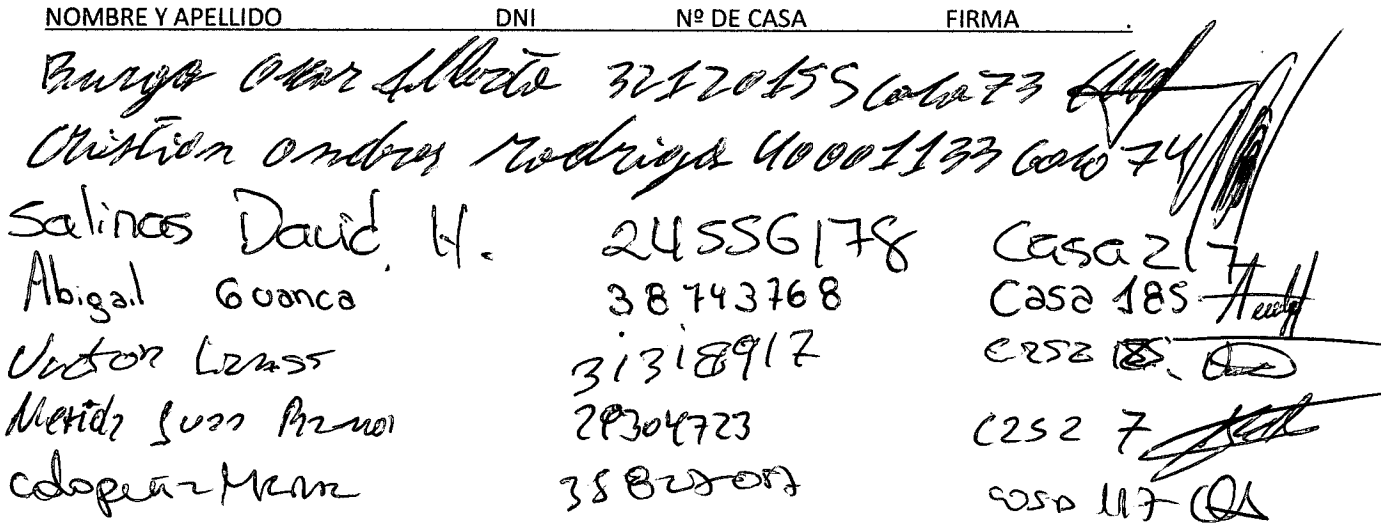 NOMBRE Y APELLIDO DNI Nº DE CASA FIRMA
Burgo Oscar Alberto 32120155 Casa 73
Cristian andres Rodrigo 40001133 casa 74
Salinas David H. 24556178 Casa 217
Abigail Guanca 38743768 Casa 185
Victor 31318917 casa
Merida Juan 29304723 casa 7
casa 117